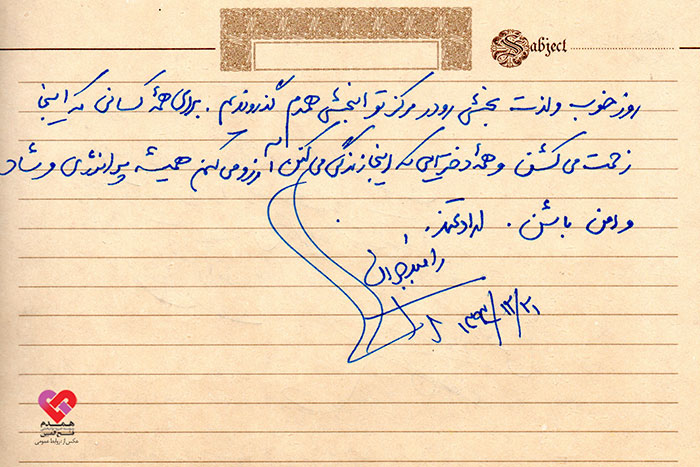 Sabject
روز خوب و لذت بخشی رو در مرکز توانبخشی همدم گذروندیم. برای همهٔ کسانی که اینجا
زحمت می کشن و همهٔ دخترایی که اینجا زندگی می کنن آرزو می کنم همیشه پر انرژی و شاد
و امن باشن. ارادتمند.
رامبد جوان
۱۳۹۳/۱۲/۲۱
همدم
فتح المبین
عکس از: روابط عمومی